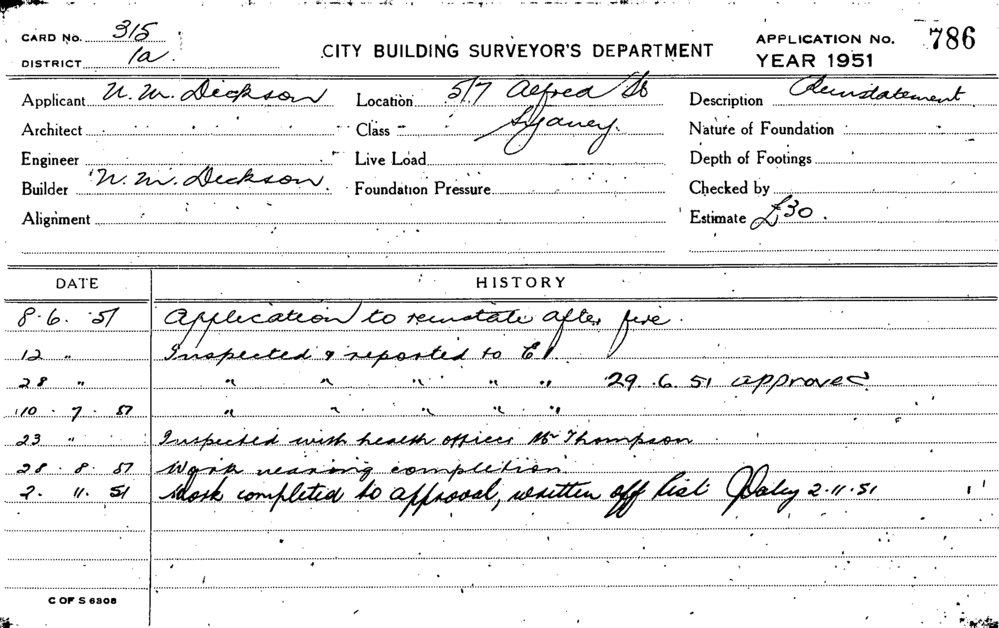 CARD No. 315
DISTRICT 1a.
CITY BUILDING SURVEYOR'S DEPARTMENT
APPLICATION No. 786
YEAR 1951
Applicant N. M. Dickson Location 5/7 Alfred St Description Reinstatement
Architect Class Sydney. Nature of Foundation
Engineer Live Load Depth of Footings
Builder N. M. Dickson. Foundation Pressure Checked by
Alignment Estimate £30.
DATE HISTORY
8. 6. 51 Application to reinstate after fire.
12 " Inspected & reported to
28 " " " " " " 29. 6. 51 approved
10. 7. 51 " " " " "
23 " Inspected with health officer Mr Thompson
28. 8. 51 Work nearing completion
2. 11. 51 Work completed to approval, written off list 2.11.51
C OF S 6308